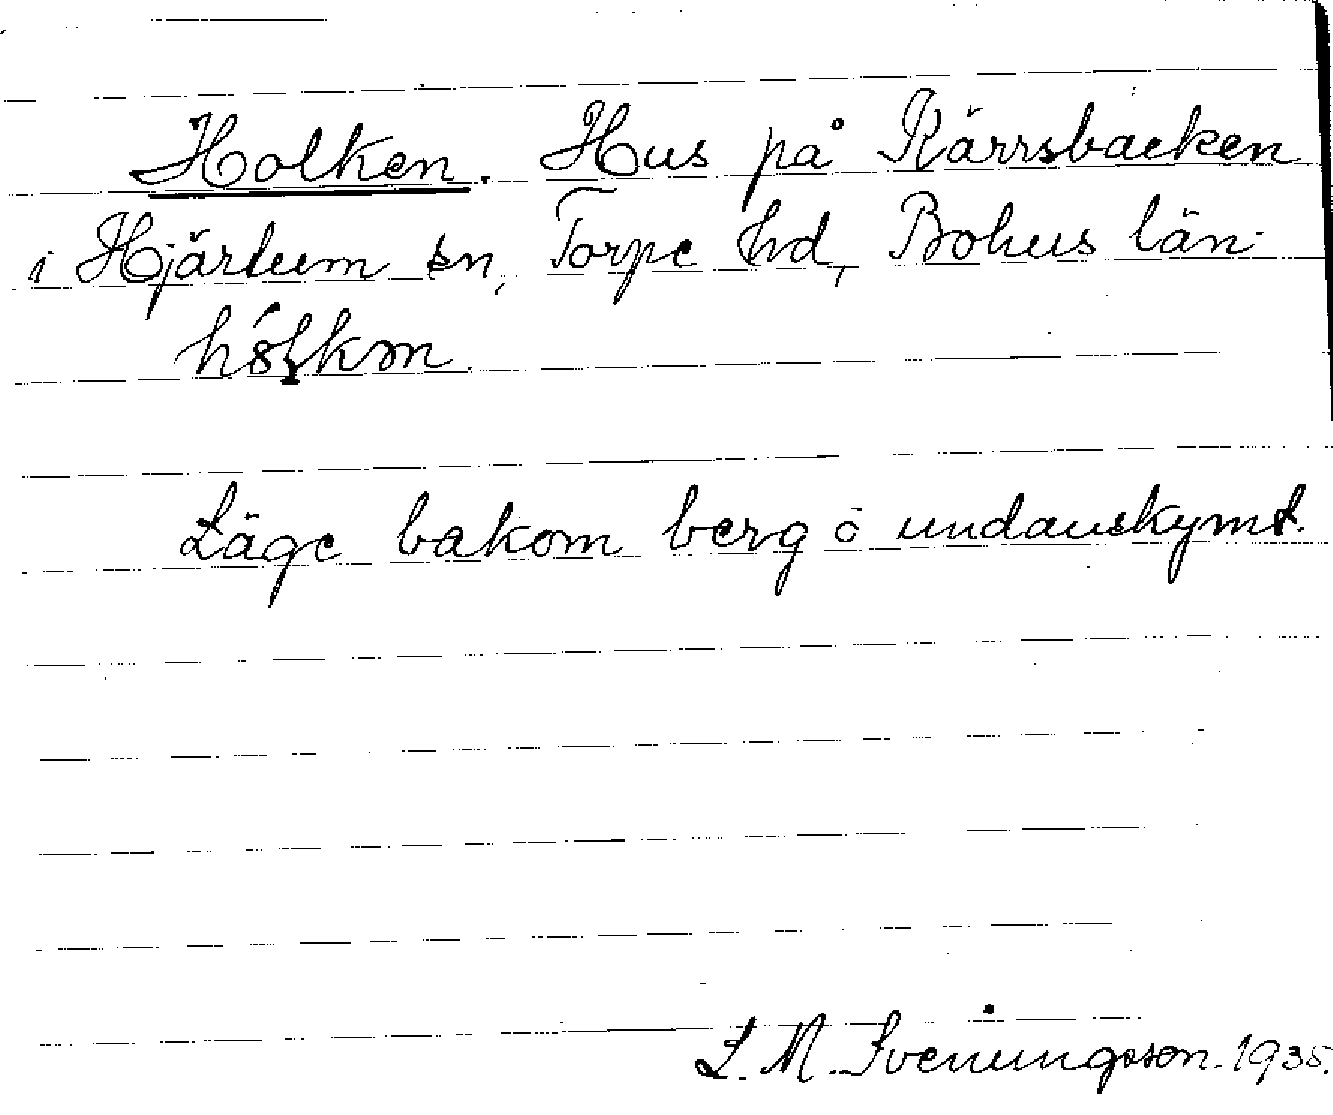 Holken. Hus på Rärrsbacken
i Hjärtum sn, Torpe hd, Bohus län.
Läge bakom berg o undanskymt.
S. M. Sveningsson. 1935.